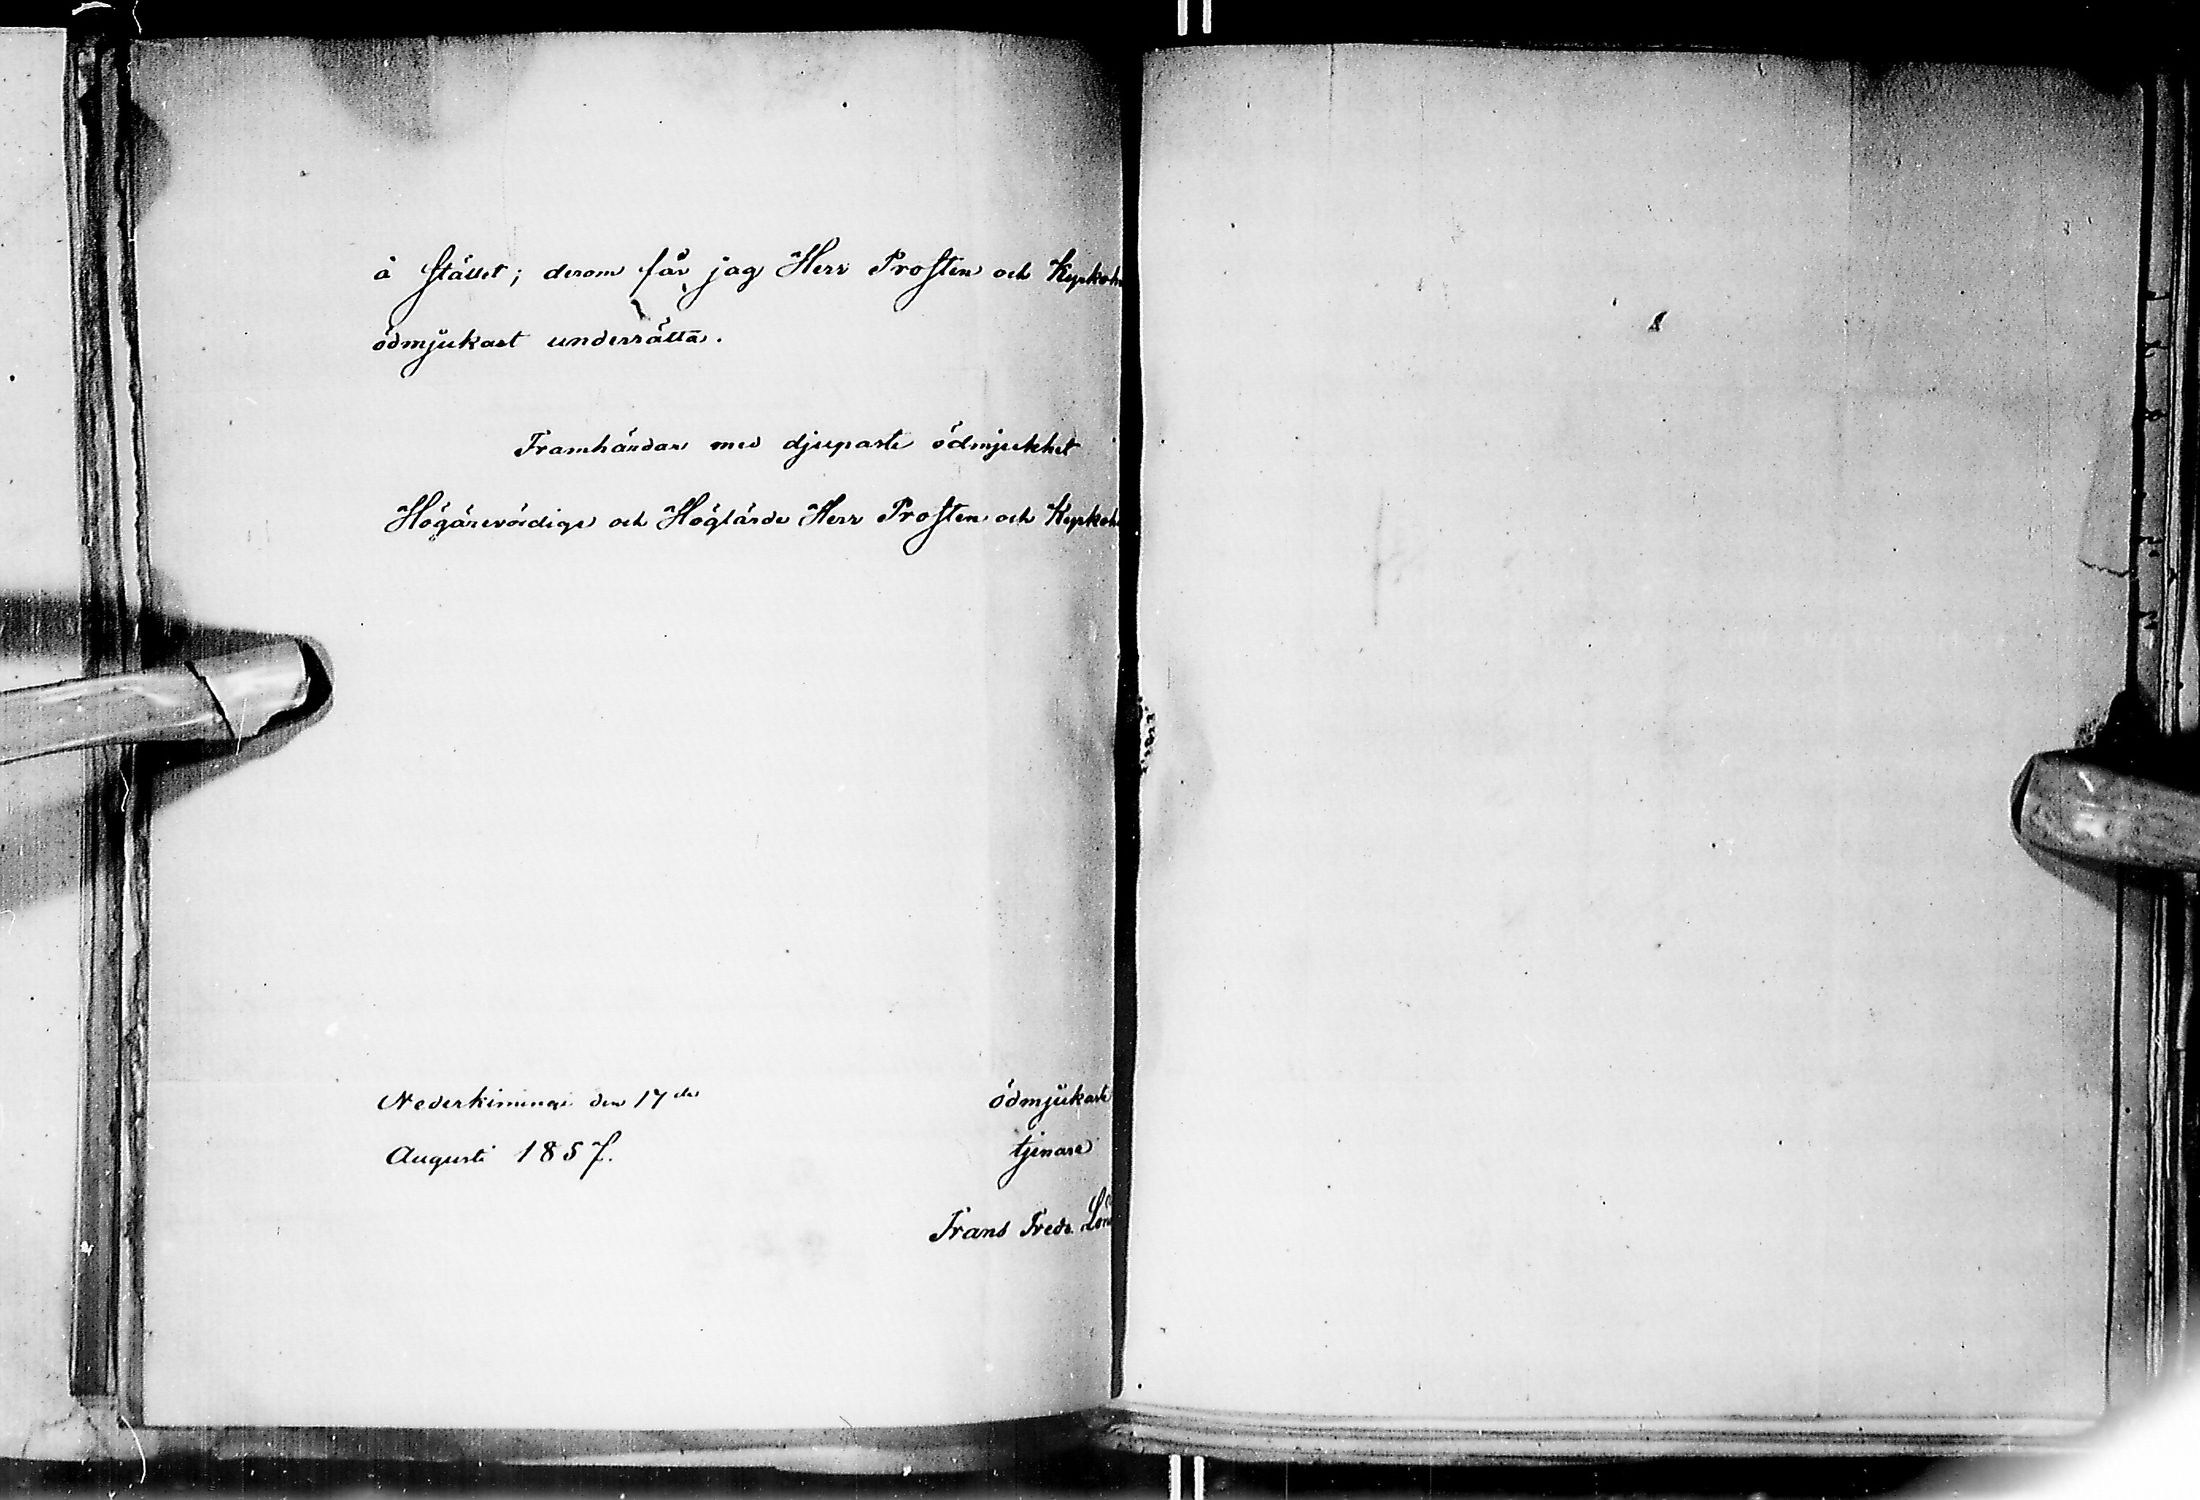 å stället; derom får jag Herr Prosten och Kyrkoh
ödmjukast underrätta.
Framhärdar med djupaste ödmjukhet
Högärevördige och Höglärde Herr Prosten och Kyrkoh
Nederkiminge den 17de
Augusti 1857.
ödmjukaste
tjenare
Frans Fredr.